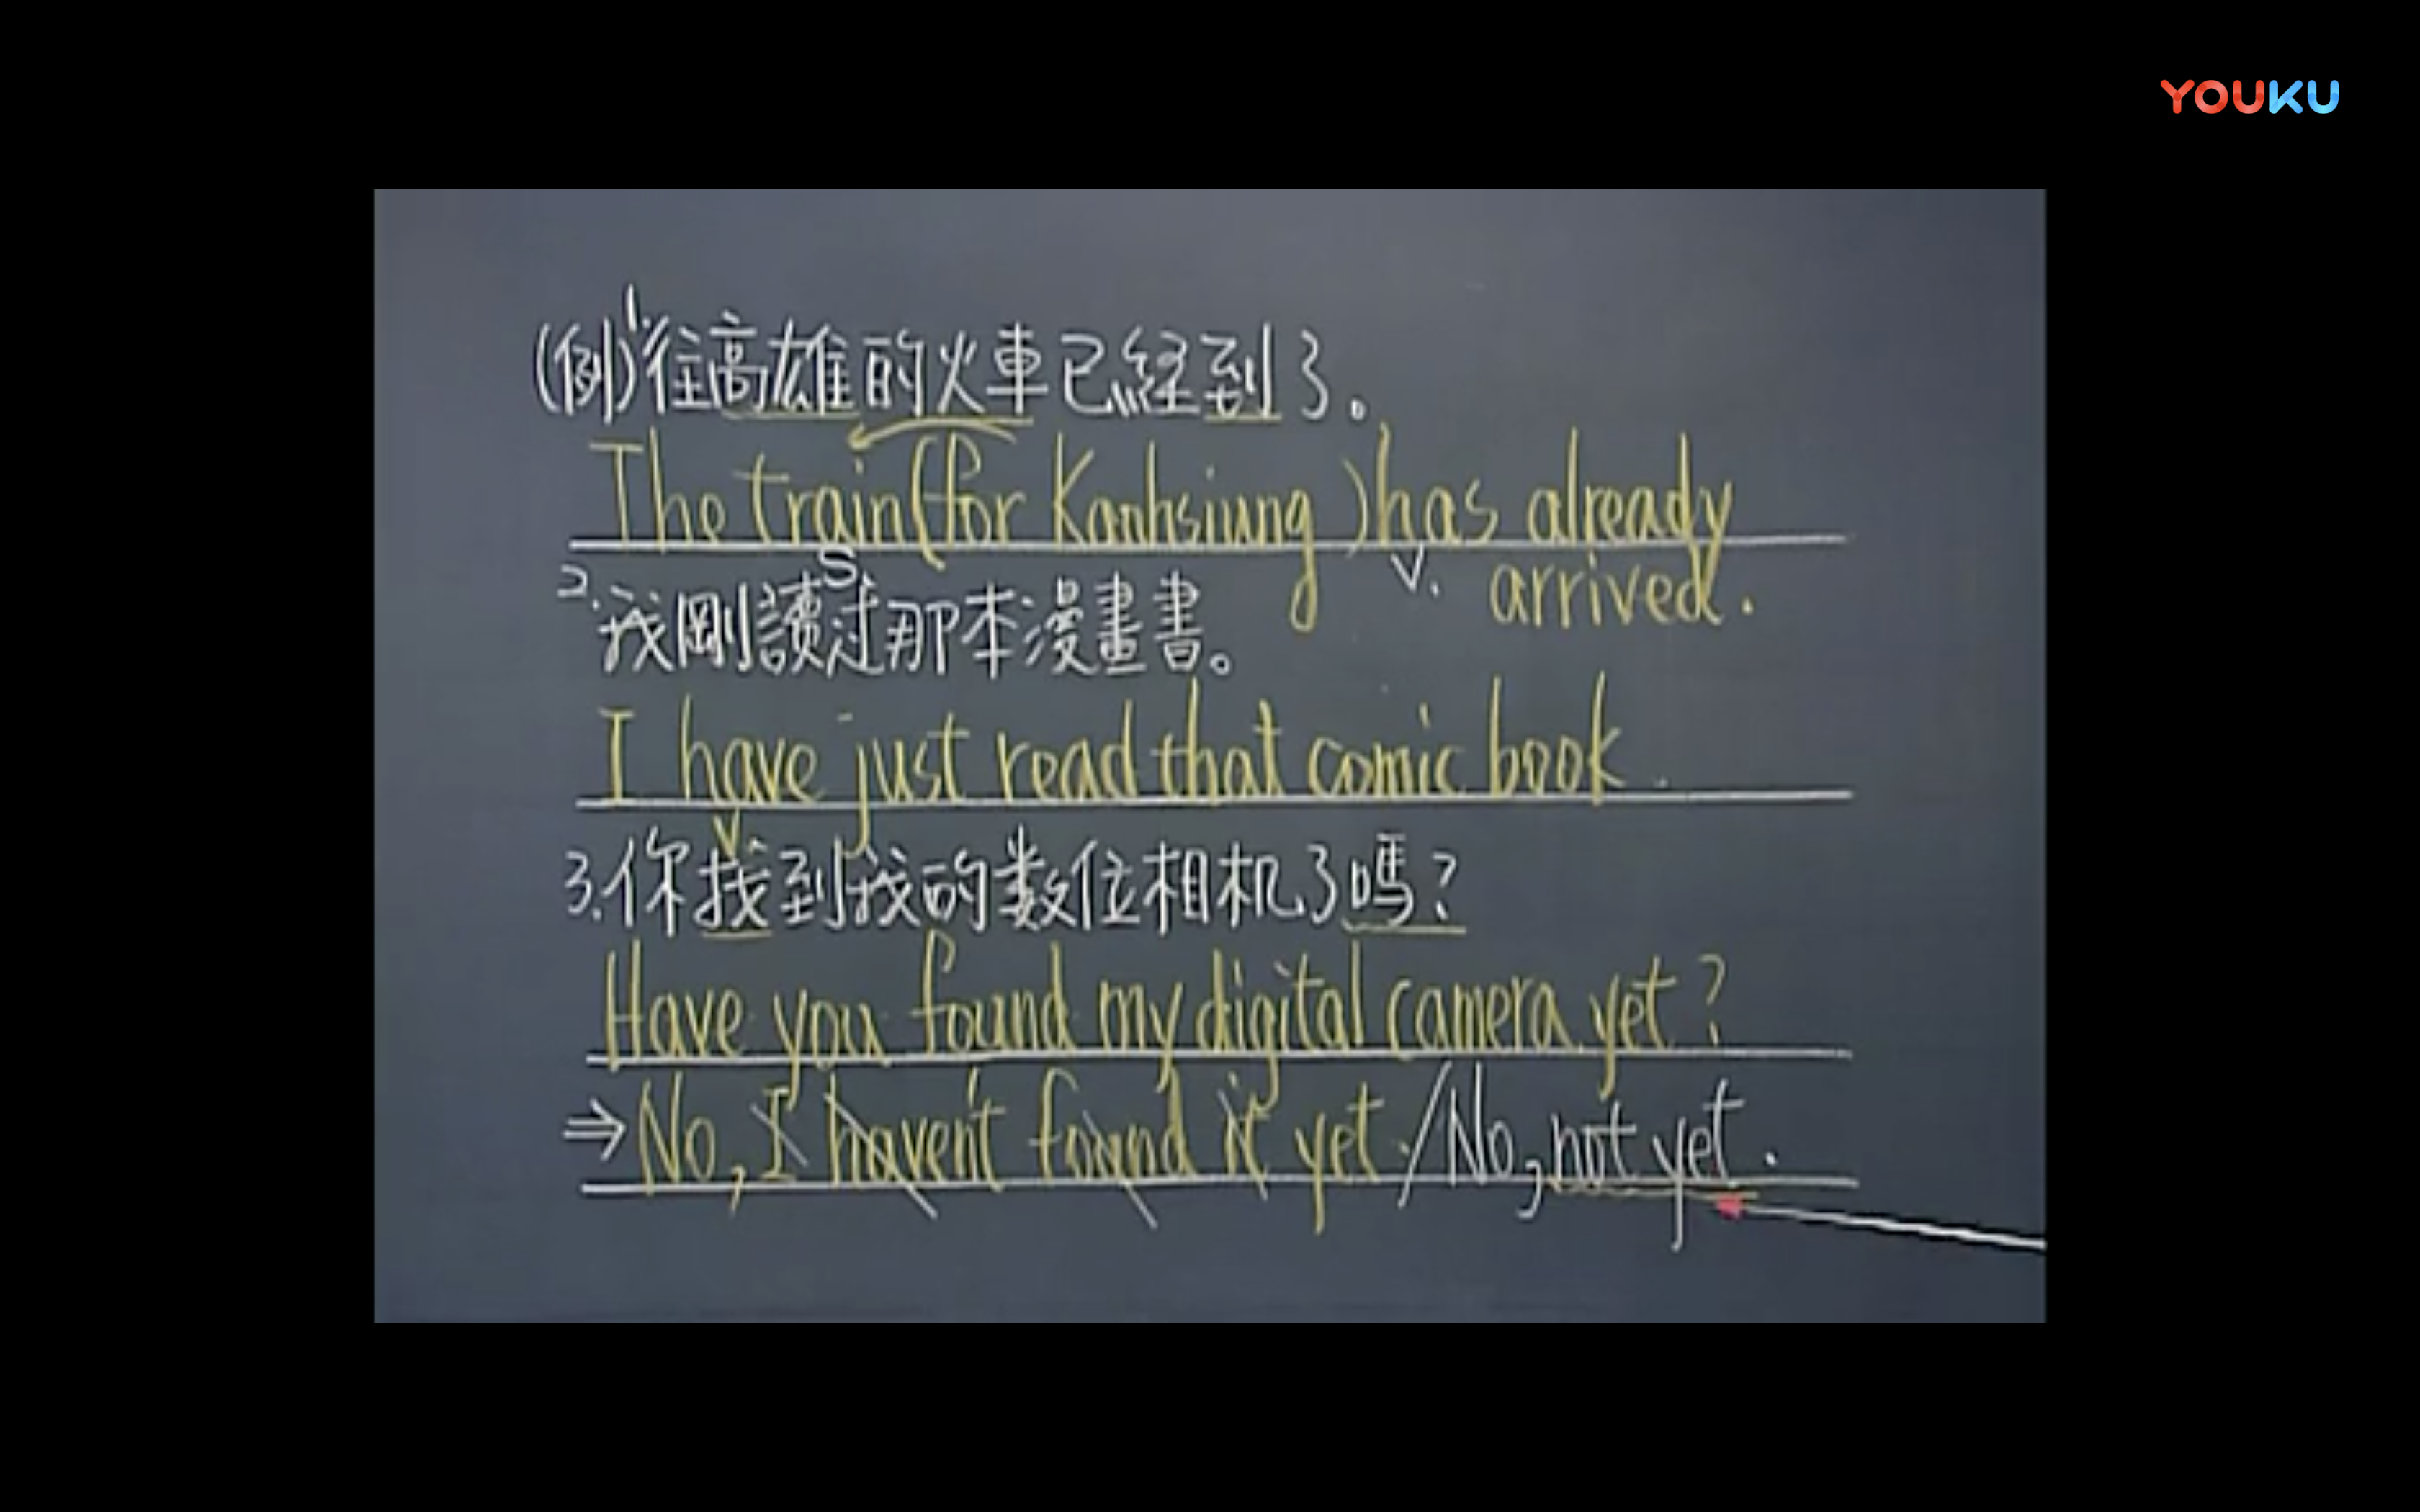 YOUKU
(例)1.往高雄的火車已經到了。
The train (for Kaohsiung) has already
S. V. arrived.
2.我剛讀过那本漫畫書。
I have just read that comic book.
V.
3.你找到我的数位相机了嗎?
Have you found my digital camera yet?
⇒No, I haven't found it yet./No, not yet.